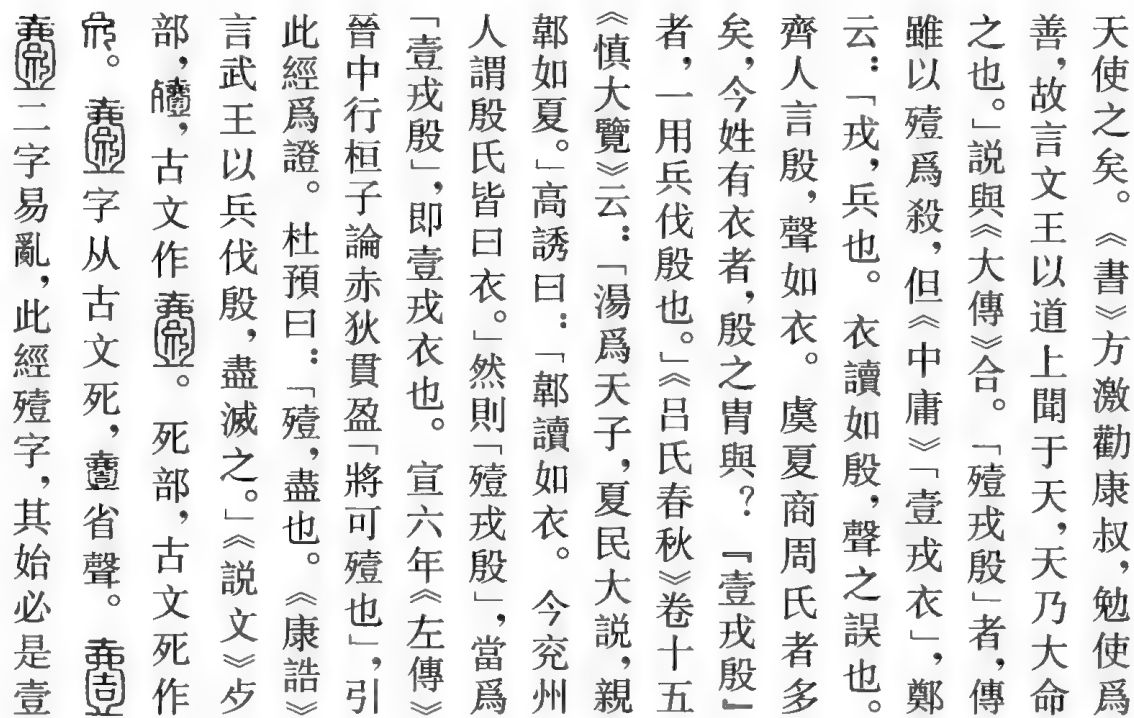 天使之矣。《書》方激勸康叔，勉使爲
善，故言文王以道上聞于天，天乃大命
之也。」説與《大傳》合。「殪戎殷」者，傳
雖以殪爲殺，但《中庸》「壹戎衣」，鄭
云：「戎，兵也。衣讀如殷，聲之誤也。
齊人言殷，聲如衣。虞夏商周氏者多
矣，今姓有衣者，殷之胄與？『壹戎殷』
者，一用兵伐殷也。」《吕氏春秋》卷十五
《慎大覽》云：「湯爲天子，夏民大説，親
郼如夏。」高誘曰：「郼讀如衣。今兖州
人謂殷氏皆曰衣。」然則「殪戎殷」，當爲
「壹戎殷」，即壹戎衣也。宣六年《左傳》
晉中行桓子論赤狄貫盈「將可殪也」，引
此經爲證。杜預曰：「殪，盡也。《康誥》
言武王以兵伐殷，盡滅之。」《説文》歺
部，古文作。死部，古文死作
字从古文死，省聲。
二字易亂，此經殪字，其始必是壹